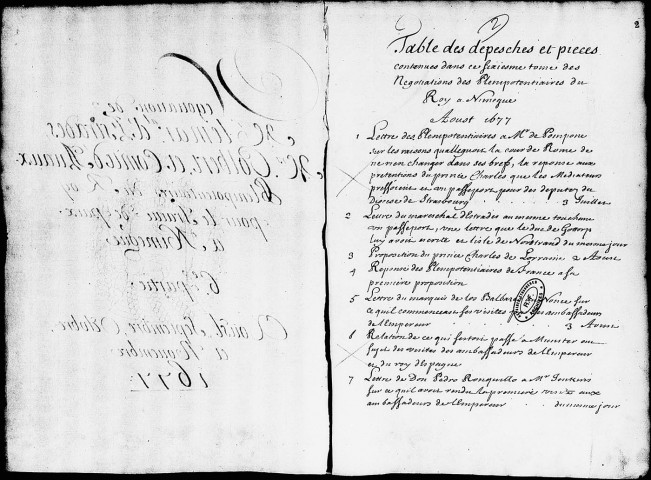 Negotiations de
Mrs. le mar.al d'Estrades
Colbert et Comte d'Avaux
Plenipotentiaires du Roy
pour le traitté de paix
a Nimegue
6e. partie
Aoust, Septembre, Octobre,
et Novembre
1677
2
2
Table des depesches et pieces
contenues dans ce sixiesme tome des
Negotiations des Plenipotentiaires du
Roy a Nimegue
Aoust 1677
1 Lettre des Plenipotentiaires a Mr. de Pompone
sur les raisons qu'alleguoit la cour de Rome de
ne rien changer dans ses brefs, la reponse aux
pretentions du prince Charles que les Mediateurs
et un passeport pour des deputez du
Diocese de Strasbourg 3 Juillet
2 Lettre du mareschal d'Estrades au mesme touchant
un passeport, une lettre que le duc de Gottorp
luy avoit escritte et l'isle de Nordstrand du mesme jour
3 Proposition du prince Charles de Lorraine 2 Aoust
4 Reponse des Plenipotentiaires de France a sa
premiere proposition
5 Lettre du marquis de los Balbazes Nonce sur
ce qu'il commenceroit ses visites ambassadeurs
de l'Empereur 3 Aoust
6 Relation de ce qui s'estoit passé a Munster au
sujet des visites des ambassadeurs de l'Empereur
et du roy d'Espagne
7 Lettre de Don Pedro Ronquillo a Mr. Jenkins
sur ce qu'il avoit rendu la premiere visite aux
ambassadeurs de l'Empereur du mesme jour